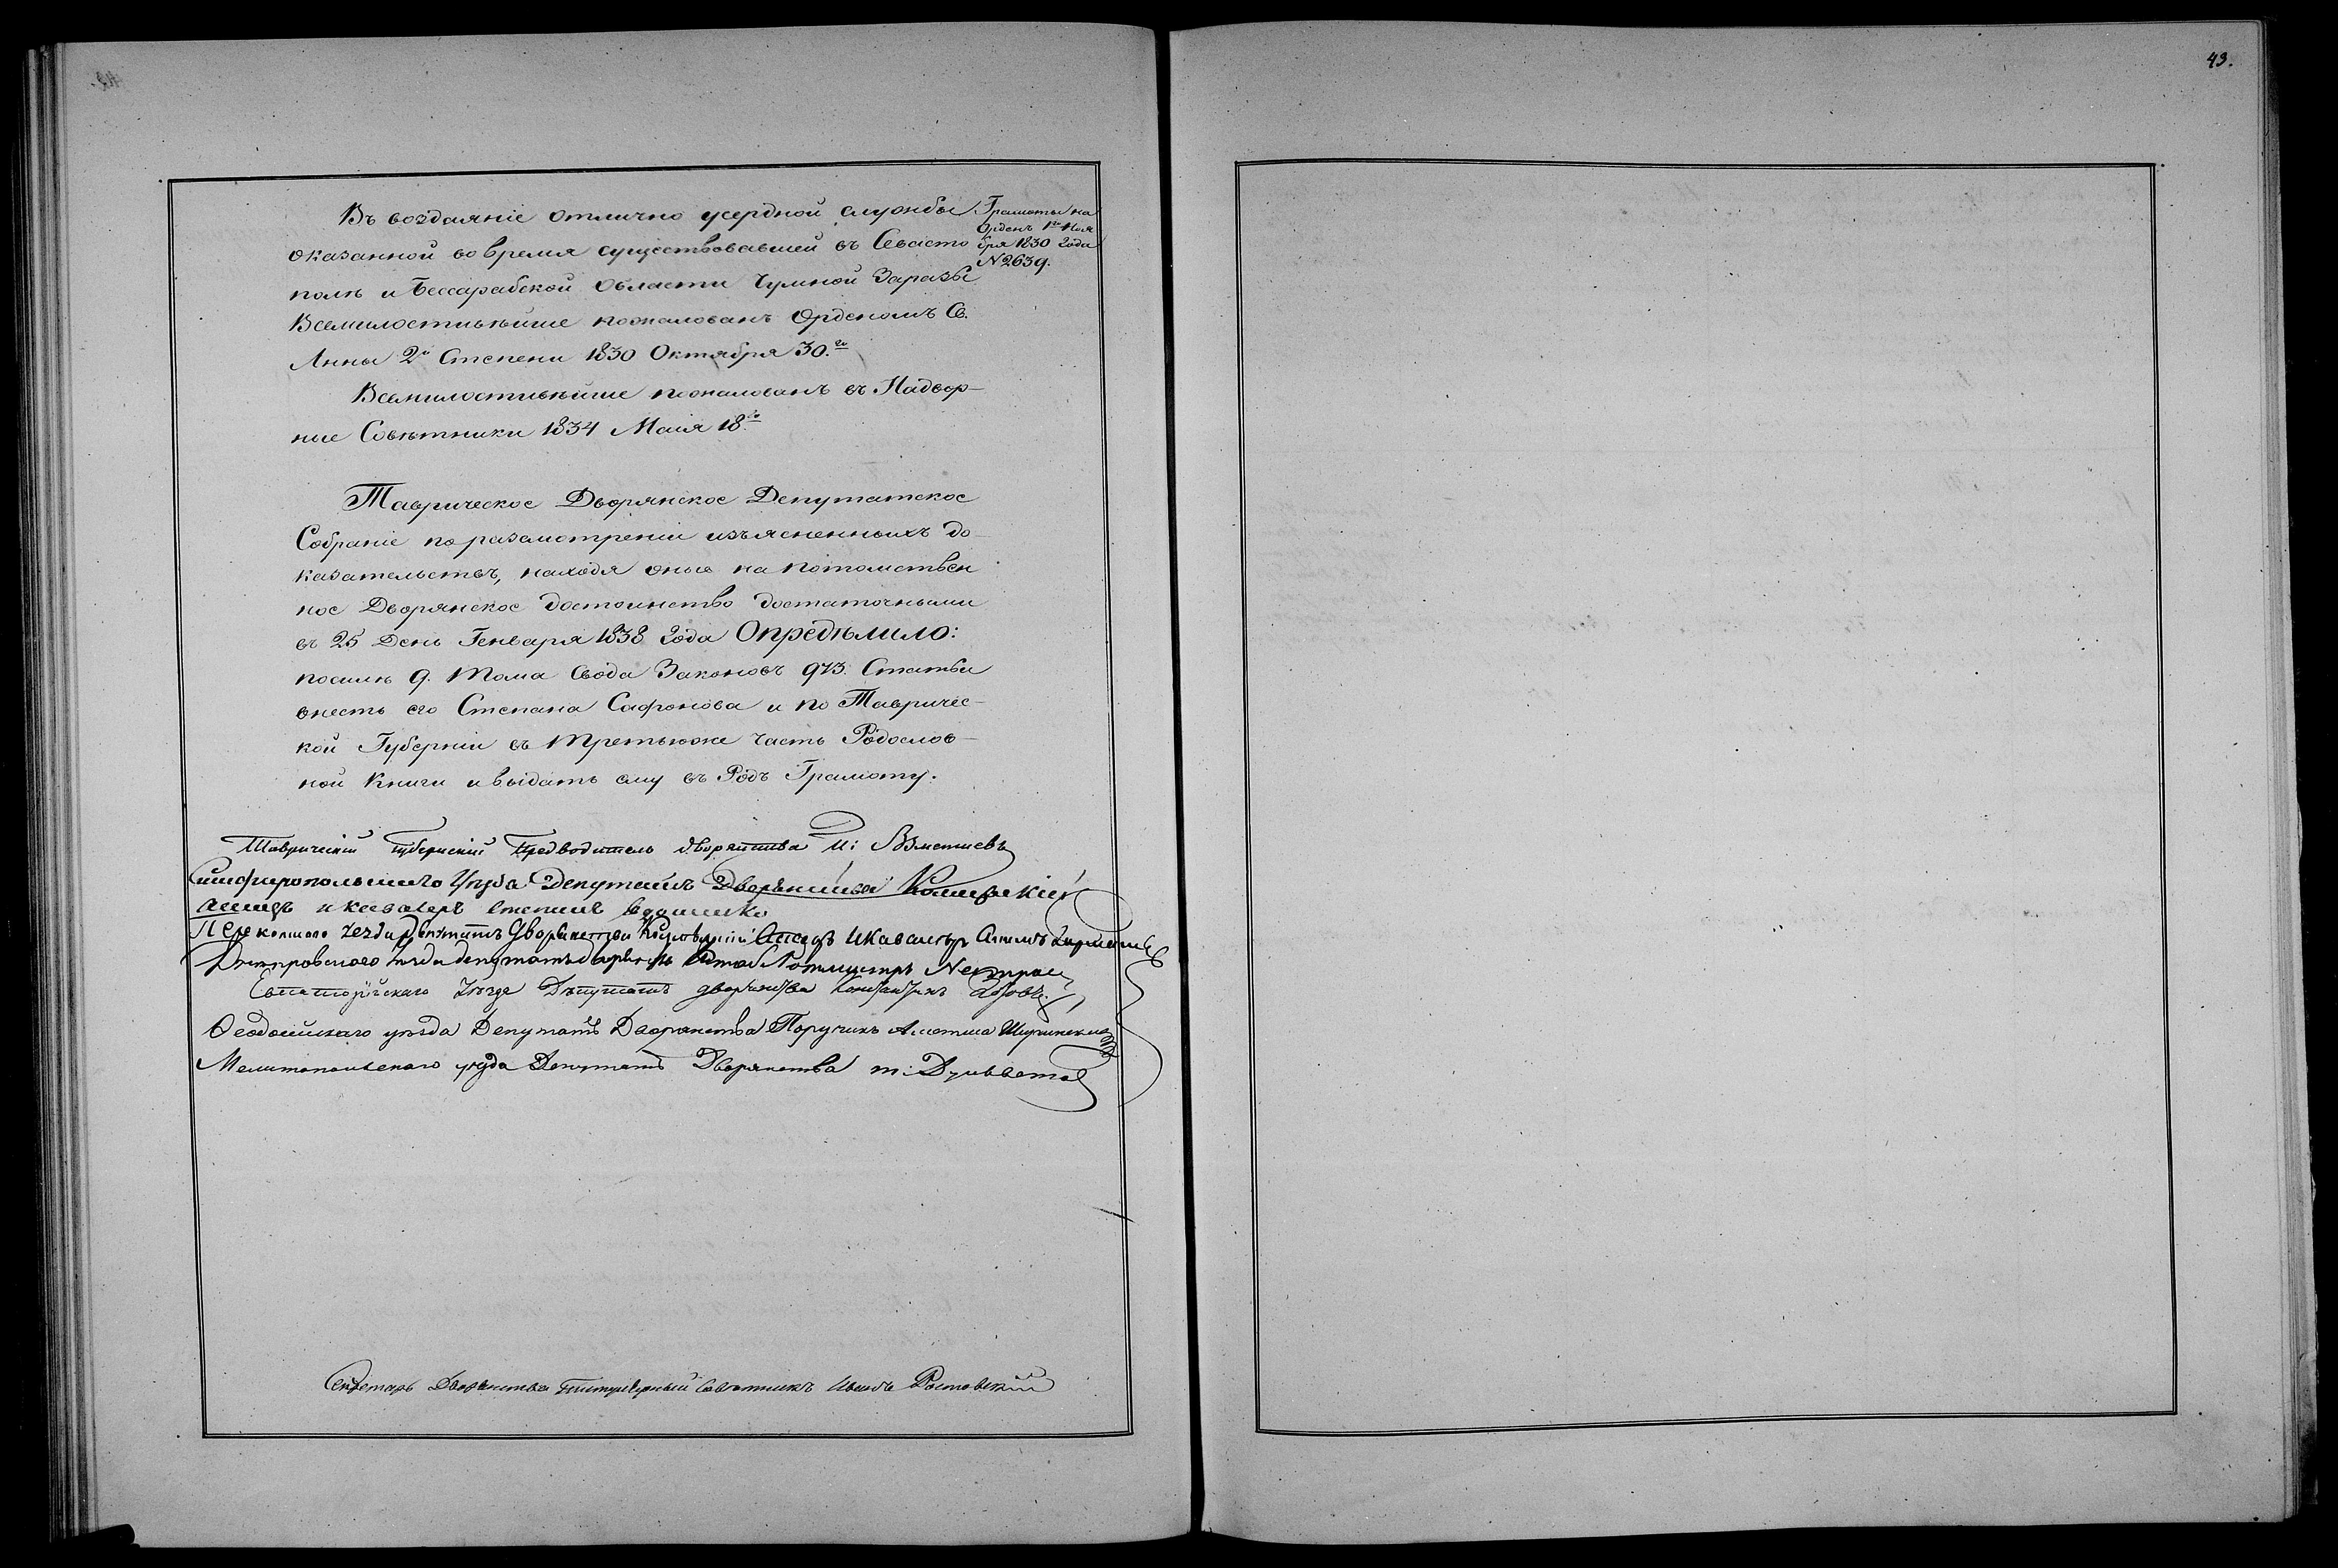 43.
Въ воздаяніе отлично усердной службы
оказанной во время существовавшей въ Севасто
полѣ и Бессарабской Области Чумной Заразы
Всемилостивѣйше пожалованъ Орденомъ Св.
Анны 2й Степени 1830 Октября 30.го
Всемилостивѣйше пожалованъ въ Надвор-
ные Совѣтники 1834 Маія 18го
Грамоты на
Орденъ 1го Ноя
бря 1830 года
№ 2639.
Таврическое Дворянское Депутатское
Собраніе по разсмотреніи изъясненныхъ до-
казательствъ, находя оные на потомствен
ное Дворянское достоинство достаточными
въ 25 День Генваря 1838 года Опредѣлило:
посилѣ 9. Тома Свода Законовъ 973. Статьи
внесть его Степана Сафонова и по Тавричес-
кой Губерніи въ третьюже часть Родослов-
ной Книги и выдать ему въ Родъ Грамоту.
Таврическій Губернскій Предводитель дворянства
Симферопольскаго Уѣзда Депутатъ Дворянства
и кавалеръ
Перекопскаго Депутатъ Дворянства и Кавалеръ
Днепровскаго уезда депутатъ Штабъ Ротмистръ
Евпаторійскаго Уѣзда Депутатъ дворянства Константинъ
Ѳеодосійскаго уѣзда Депутатъ Дворянства Поручикъ Аметша Ширинской
Мелитопольскаго уѣзда Депутатъ Дворянства
Секретарь Дворянства Титулярный Совѣтникъ Иванъ Ростовскій